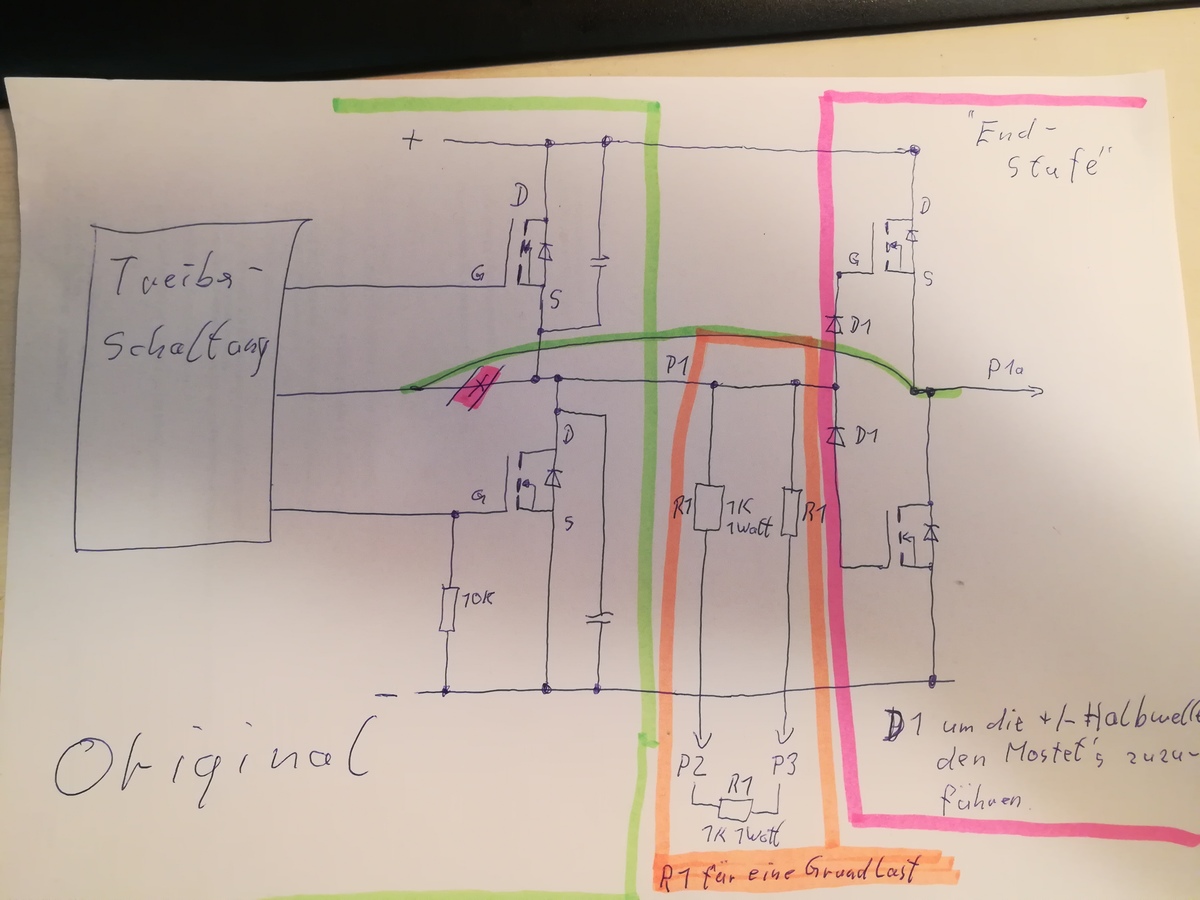 "End-
stufe"
+
D
D
Treiber-
G
G
S
S
Schaltung
D1
P1
P1a
D
D1
G
R1
1K
1Watt
R1
S
10K
−
Original
D1 um die +/- Halbwelle
den Mosfet's zuzu-
führen.
P2
P3
R1
1K 1Watt
R1 für eine Grundlast